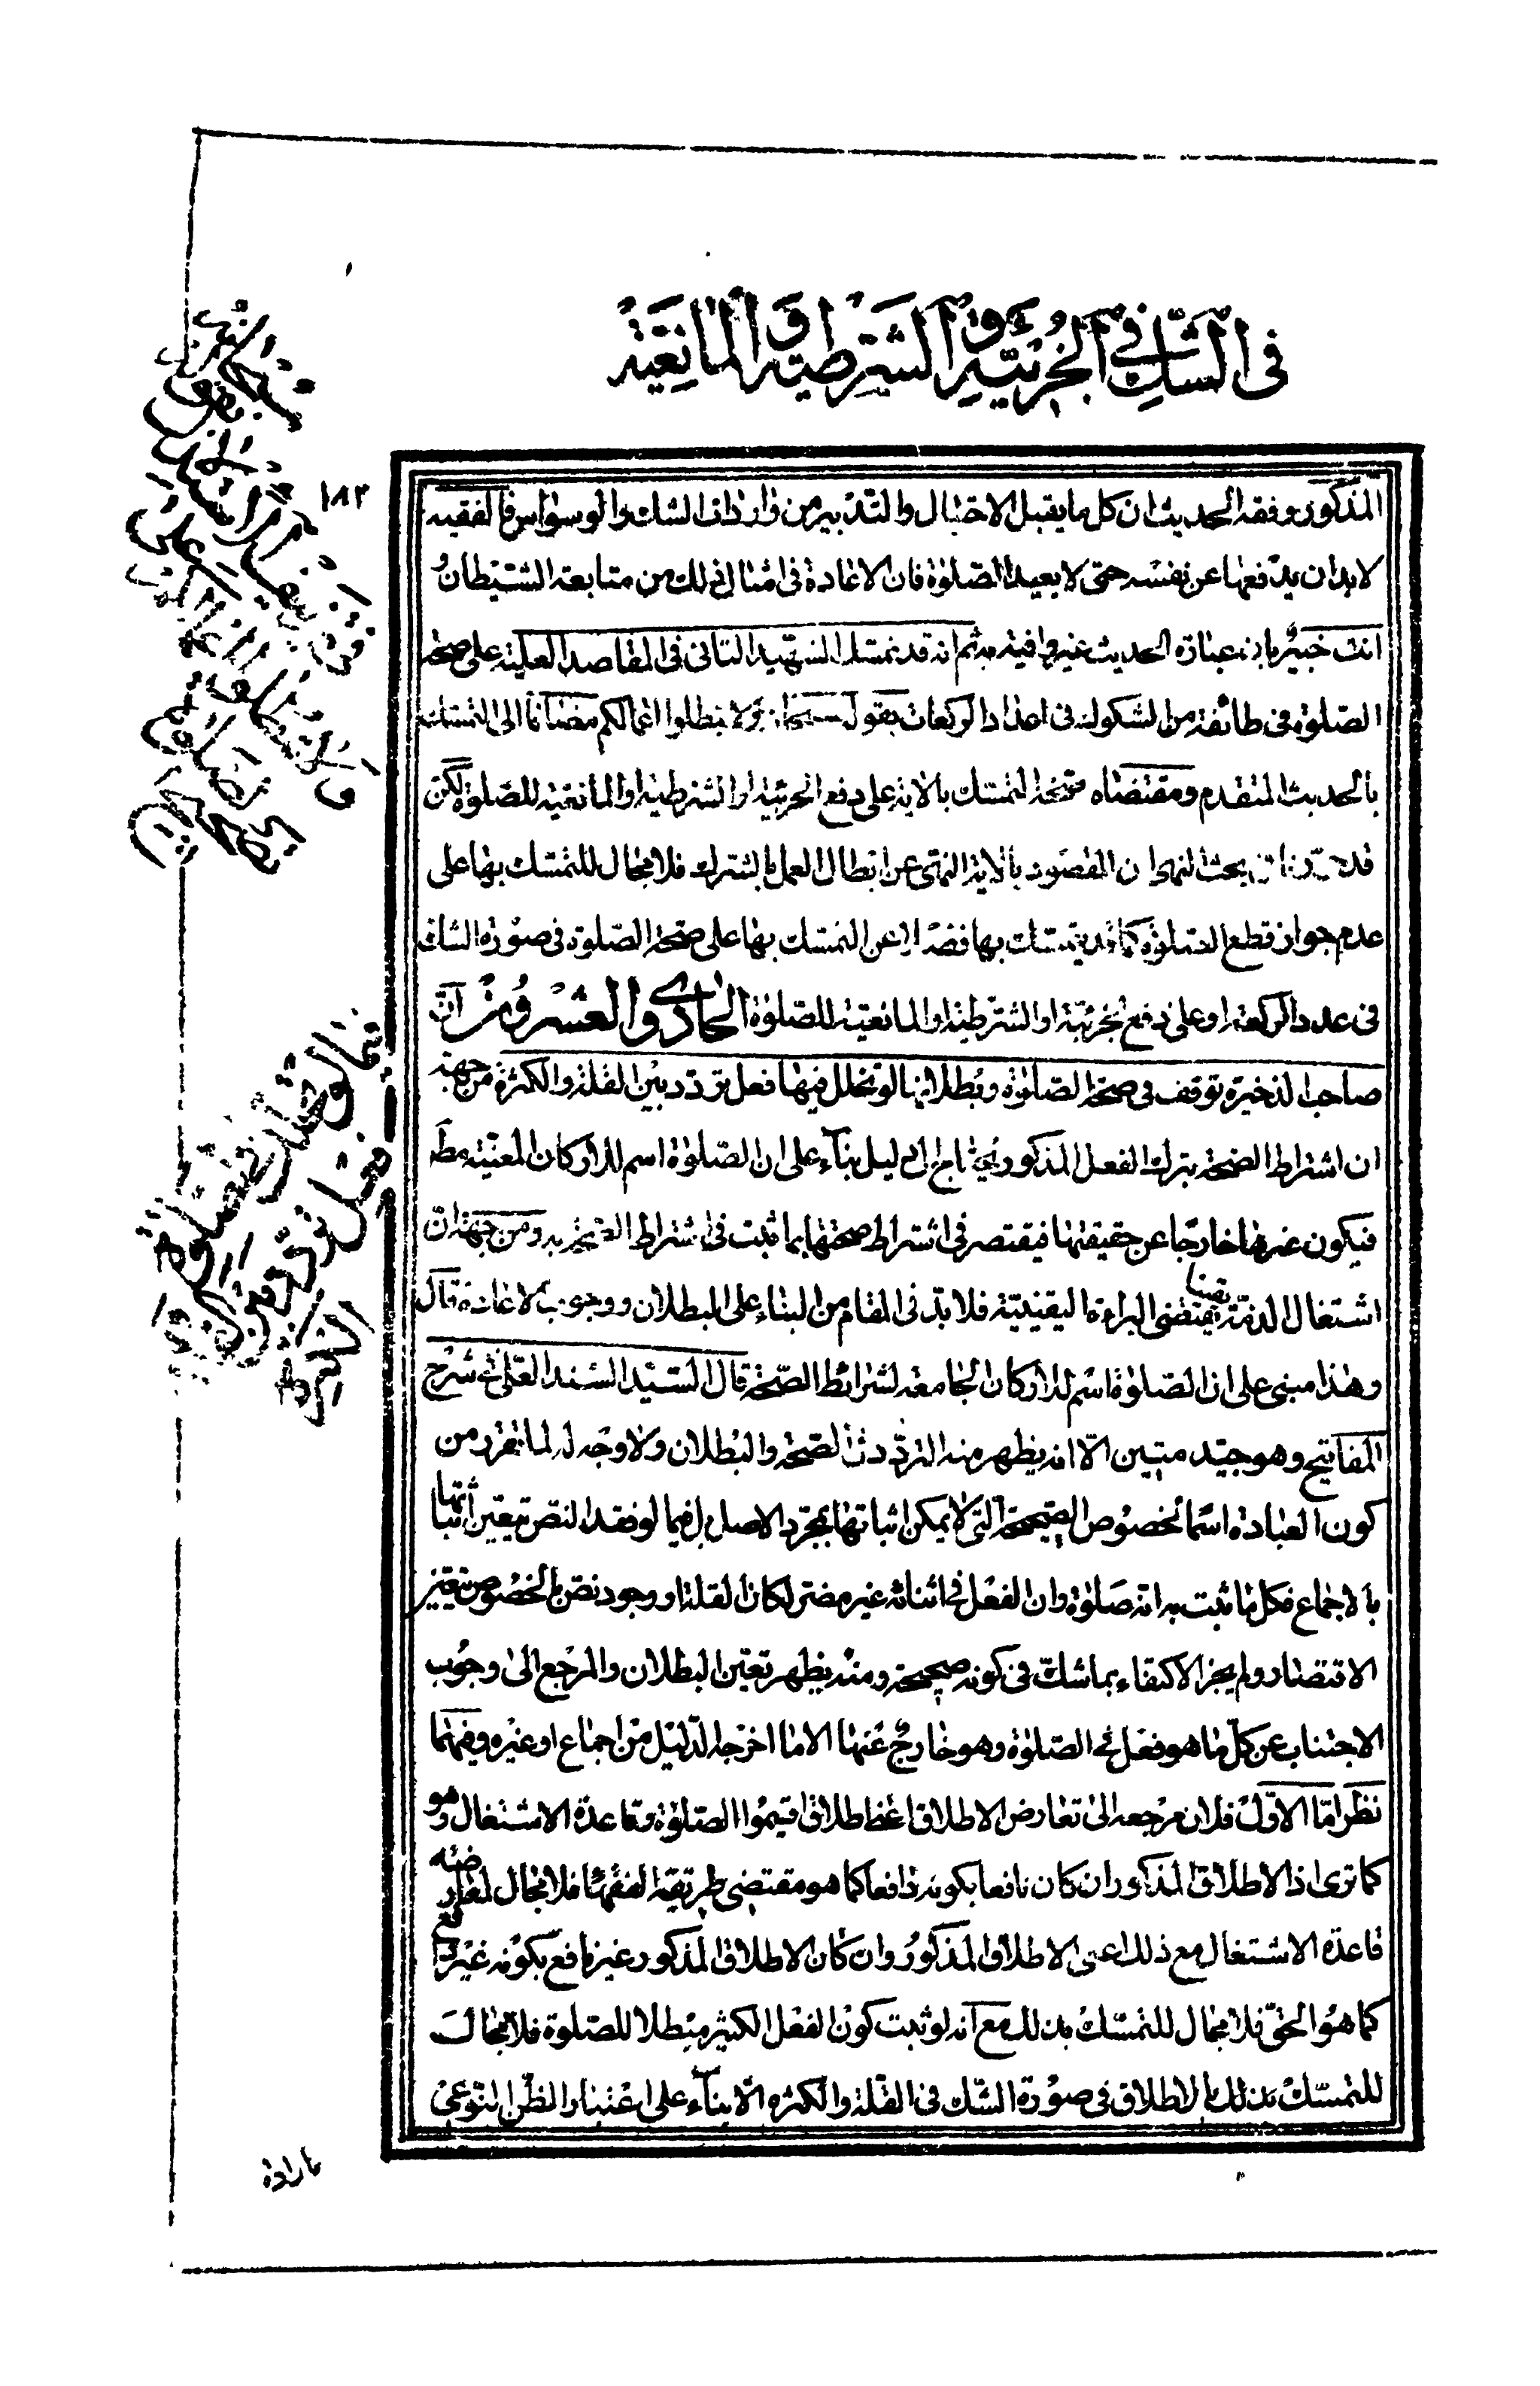 فى الشك فى الجزئية و الشرطية و المانعية
١٨٢
المذكور وفقه الحديث ان كل ما يقبل الاحتيال والتدبير من واردات الشك والوسواس فالفقيه
لابد ان يدفعها عن نفسه حتى لا يعيد الصلوة فان الاعادة فى امثال ذلك من متابعة الشيطان و
انت خبير بان عبارة الحديث غير وافية به ثم انه قد تمسك الشهيد الثانى فى المقاصد العلية على صحة
الصلوة فى طائفة من الشكوك فى اعداد الركعات بقوله سبحانه ولا تبطلوا اعمالكم مضافا الى التمسك
بالحديث المتقدم ومقتضاه صحة التمسك بالاية على دفع الجزئية او الشرطية او المانعية للصلوة لكن
قد بحث ان المقصود بالاية النهى عن ابطال العمل بالشرك فلا مجال للتمسك بها على
عدم جواز قطع الصلوة كما قد يتمسك بها فضلا عن التمسك بها على صحة الصلوة فى صورة الشك
فى عدد الركعة او على دفع الجزئية او الشرطية او المانعية للصلوة الحادى والعشرون ان
صاحب الذخيرة توقف فى صحة الصلوة وبطلانها لو تخلل فيها فعل تردد بين القلة والكثرة من جهة
ان اشتراط الصحة بترك الفعل المذكور يحتاج الى دليل بناء على ان الصلوة اسم للاركان المعينة مط
فيكون غيرها خارجا عن حقيقتها فيقتصر فى اشتراط صحتها بما ثبت فى اشتراط الصحة به ومن جهة ان
اشتغال الذمة يقينا يقتضى البراءة اليقينية فلا بد فى المقام من البناء على البطلان ووجوب الاعادة قال
وهذا مبنى على ان الصلوة اسم للاركان الجامعة لشرائط الصحة قال السيد السند العلى فى شرح
المفاتيح وهو جيد متين الا انه يظهر منه التردد فى الصحة والبطلان ولا وجه له لما تقرر من
كون العبادة اسما لخصوص الصحيحة التى لا يمكن اثباتها بمجرد الاصل بل فيما لو فقد النص يتعين اثباتها
بالاجماع فكل ما ثبت به انه صلوة وان الفعل فى اثنائه غير مضر لكان القلة او وجود نص بالخصوص تعين
الاقتصار ولم يجز الاكتفاء بما شك فى كونه صحيحة ومنه يظهر تعين البطلان والمرجع الى وجوب
الاجتناب عن كل ما هو فعل فى الصلوة وهو خارج عنها الا ما اخرجه الدليل من اجماع او غيره وفيهما
نظر اما الاول فلان مرجعه الى تعارض الاطلاق اعنى اطلاق اقيموا الصلوة وقاعدة الاشتغال وهو
كما ترى اذ الاطلاق المذكور ان كان نافعا بكونه دافعا كما هو مقتضى طريقة الفقهاء فلا مجال لمعارضة
قاعدة الاشتغال مع ذلك اعنى الاطلاق المذكور وان كان الاطلاق المذكور غير نافع بكونه غير دافع
كما هو الحق فلا مجال للتمسك بذلك مع انه لو ثبت كون الفعل الكثير مبطلا للصلوة فلا مجال
للتمسك بذلك الاطلاق فى صورة الشك فى القلة والكثرة الا بناء على اعتبار الظن النوعى
بارادة